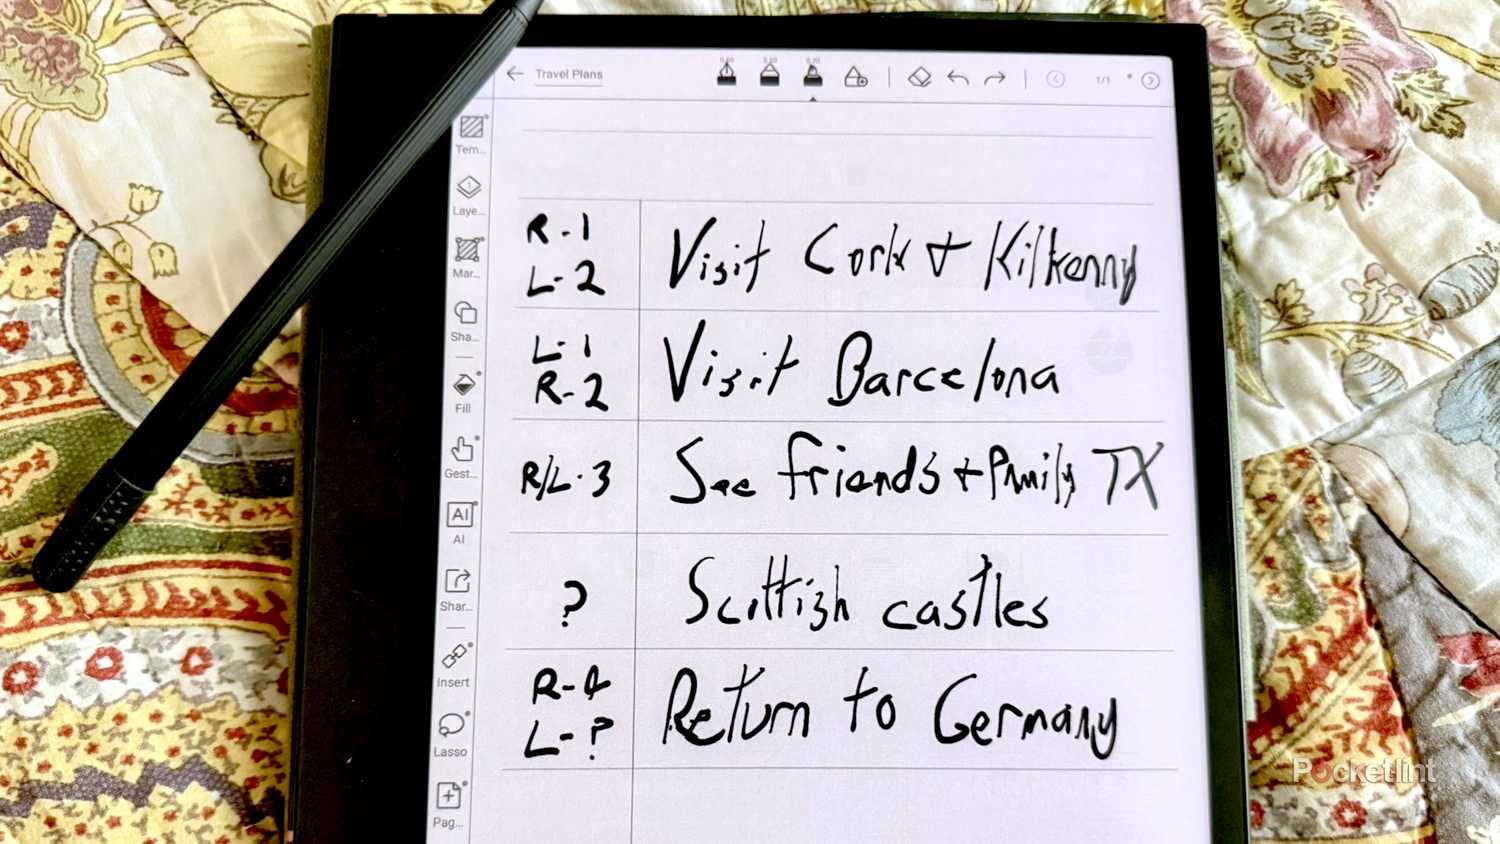 Travel Plans
1/1
Tem...
Laye...
Mar...
Sha...
Fill
Gest...
AI
AI
Shar...
Insert
Lasso
Pag...
R-1
L-2
Visit Cork + Kilkenny
L-1
R-2
Visit Barcelona
R/L-3
See friends + family TX
?
Scottish castles
R-4
L-?
Return to Germany
Pocketlint